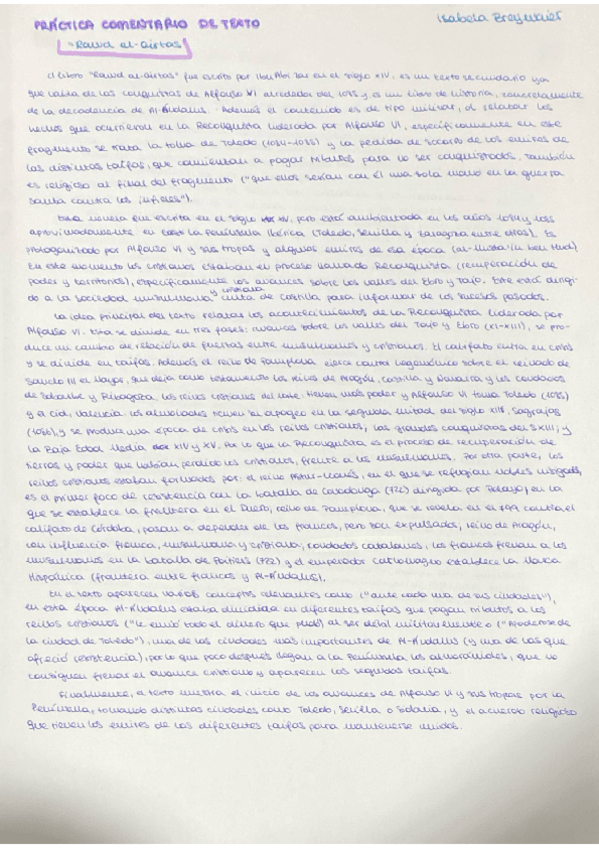 PRÁCTICA COMENTARIO DE TEXTO
Isabela Breymaier
"Rawd al-qirtas"
El libro "Rawd al-qirtas" fue escrito por Ibn Abi Zar en el siglo XIV, es un texto secundario ya
que habla de las conquistas de Alfonso VI alrededor del 1085 y es un libro de historia, concretamente
de la decadencia de Al-Ándalus. Además el contenido es de tipo militar, al relatar los
hechos que ocurrieron en la Reconquista liderada por Alfonso VI, específicamente en este
fragmento se trata la toma de Toledo (1084-1085) y la pedida de socorro de los emires de
las distintas taifas, que comienzan a pagar tributos para no ser conquistados, también
es religioso al final del fragmento ("que ellos serían con él una sola mano en la guerra
santa contra los infieles").
Esta novela fue escrita en el siglo XIV, pero está ambientada en los años 1084 y 1085
aproximadamente en la Península Ibérica (Toledo, Sevilla y Zaragoza entre otras). Es
protagonizado por Alfonso VI y sus tropas y algunos emires de esa época (al-Musta'in ben Hud).
En este momento los cristianos estaban el proceso llamado Reconquista (recuperación de
poder y territorios), específicamente los avances sobre los valles del Ebro y Tajo. Este está dirigi-
do a la sociedad musulmana y cristiana culta de Castilla para informar de los sucesos pasados.
La idea principal del texto relatar los acontecimientos de la Reconquista liderada por
Alfonso VI. Esta se divide en tres fases: avances sobre los valles del Tajo y Ebro (XI-XIII), se pro-
duce un cambio de relación de fuerzas entre musulmanes y cristianos. El califato entra en crisis
y se divide en taifas. Además el reino de Pamplona ejerce control hegemónico sobre el reinado de
Sancho III el Mayor, que deja como testamento los reinos de Aragón, Castilla y Navarra y los condados
de Sobrarbe y Ribagorza. Los reinos cristianos del norte tienen más poder y Alfonso VI toma Toledo (1085)
y el Cid, Valencia. Los almohades tienen su apogeo en la segunda mitad del siglo XIII, Sagrajas
(1086), y se produce una época de crisis en los reinos cristianos; las grandes conquistas del SXIII; y
la Baja Edad Media XIV y XV. Por lo que la Reconquista es el proceso de recuperación de
tierras y poder que habían perdido los cristianos, frente a los musulmanes. Por otra parte, los
reinos cristianos estaban formados por: el reino Astur-Leonés, en el que se refugian nobles visigodos,
es el primer foco de resistencia con la batalla de Covadonga (722) dirigida por Pelayo, en la
que se establece la frontera en el Duero, reino de Pamplona, que se revela en el 799 contra el
califato de Córdoba, pasan a depender de los francos, pero son expulsados, reino de Aragón,
con influencia franca, musulmana y cristiana, condados catalanes, los francos frenan a los
musulmanes en la batalla de Poitiers (732) y el emperador Carlomagno establece la Marca
Hispánica (frontera entre francos y Al-Ándalus).
En el texto aparecen varios conceptos relevantes como ("ante cada una de sus ciudades"),
en esta época Al-Ándalus estaba dividida en diferentes taifas que pagan tributos a los
reinos cristianos ("le envió todo el dinero que pudo) al ser débil militarmente o ("Apoderose de
la ciudad de Toledo"), una de las ciudades más importantes de Al-Ándalus (y una de las que
ofreció resistencia), por lo que poco después llegan a la Península los almorávides, que no
consiguen frenar el avance cristiano y aparecen las segundas taifas.
Finalmente, el texto muestra el inicio de los avances de Alfonso VI y sus tropas por la
Península, tomando distintas ciudades como Toledo, Sevilla o Sidonia, y el acuerdo religioso
que tienen los emires de las diferentes taifas para mantenerse unidos.